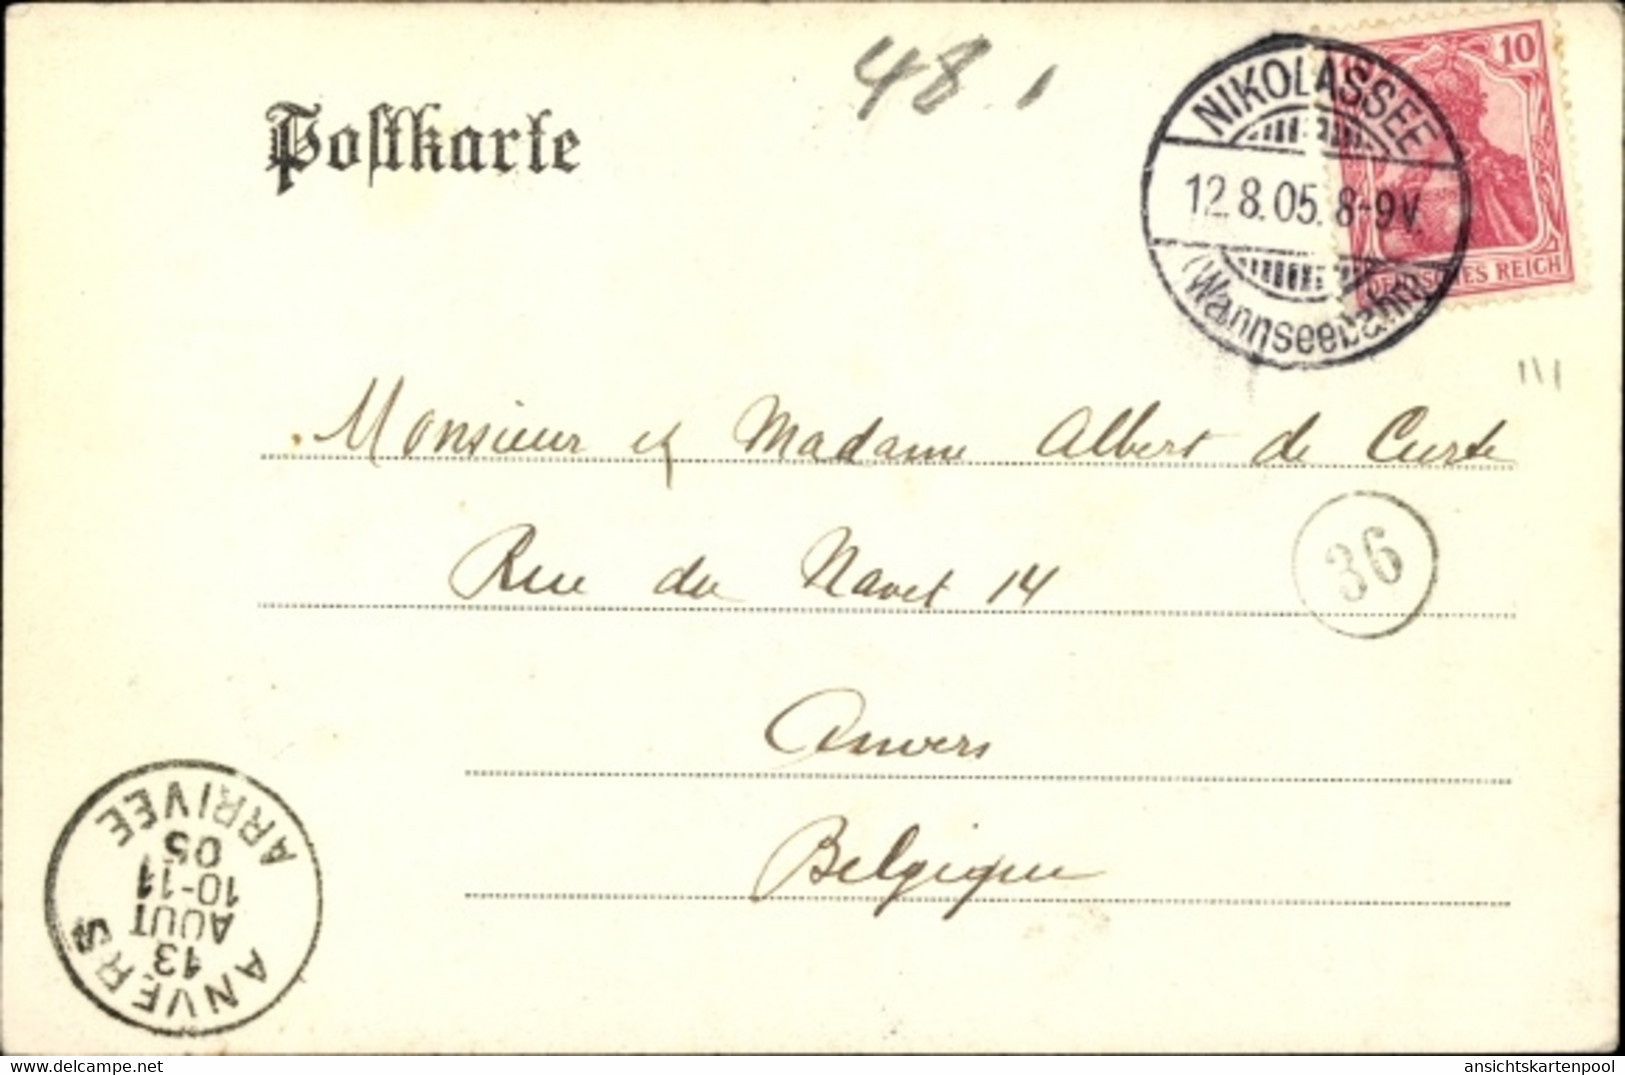 48.
10
DEUTSCHES REICH
NIKOLASSEE
12.8.05. 8-9V.
(Wannseebahn)
Postkarte
Monsieur et Madame Albert de Curte
Rue du Navet 14
36
Anvers
Belgique
ANVERS
13
AOUT
10-11
05
ARRIVEE
delcampe.net
ansichtskartenpool